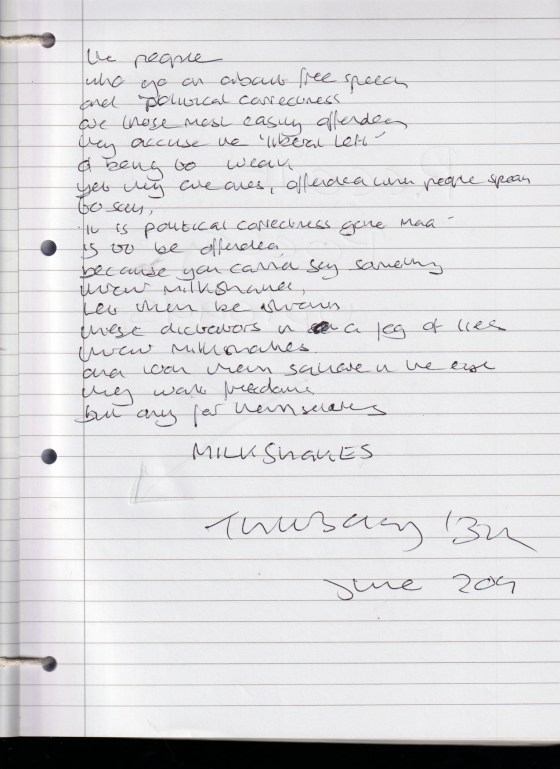 The people
who go on about free speech
and 'political correctness'
are those most easily offended
they accuse the 'liberal left'
of being too weak
yet they are ones, offended when people speak
to say,
'it is political correctness gone mad'
is to be offended
because you cannot say something
throw milkshakes,
let them be shown
these dictators in a peg of lies
throw milkshakes
and look them square in the eye
they want freedoms
but only for themselves
MILKSHAKES
Thursday 13th
June 2019